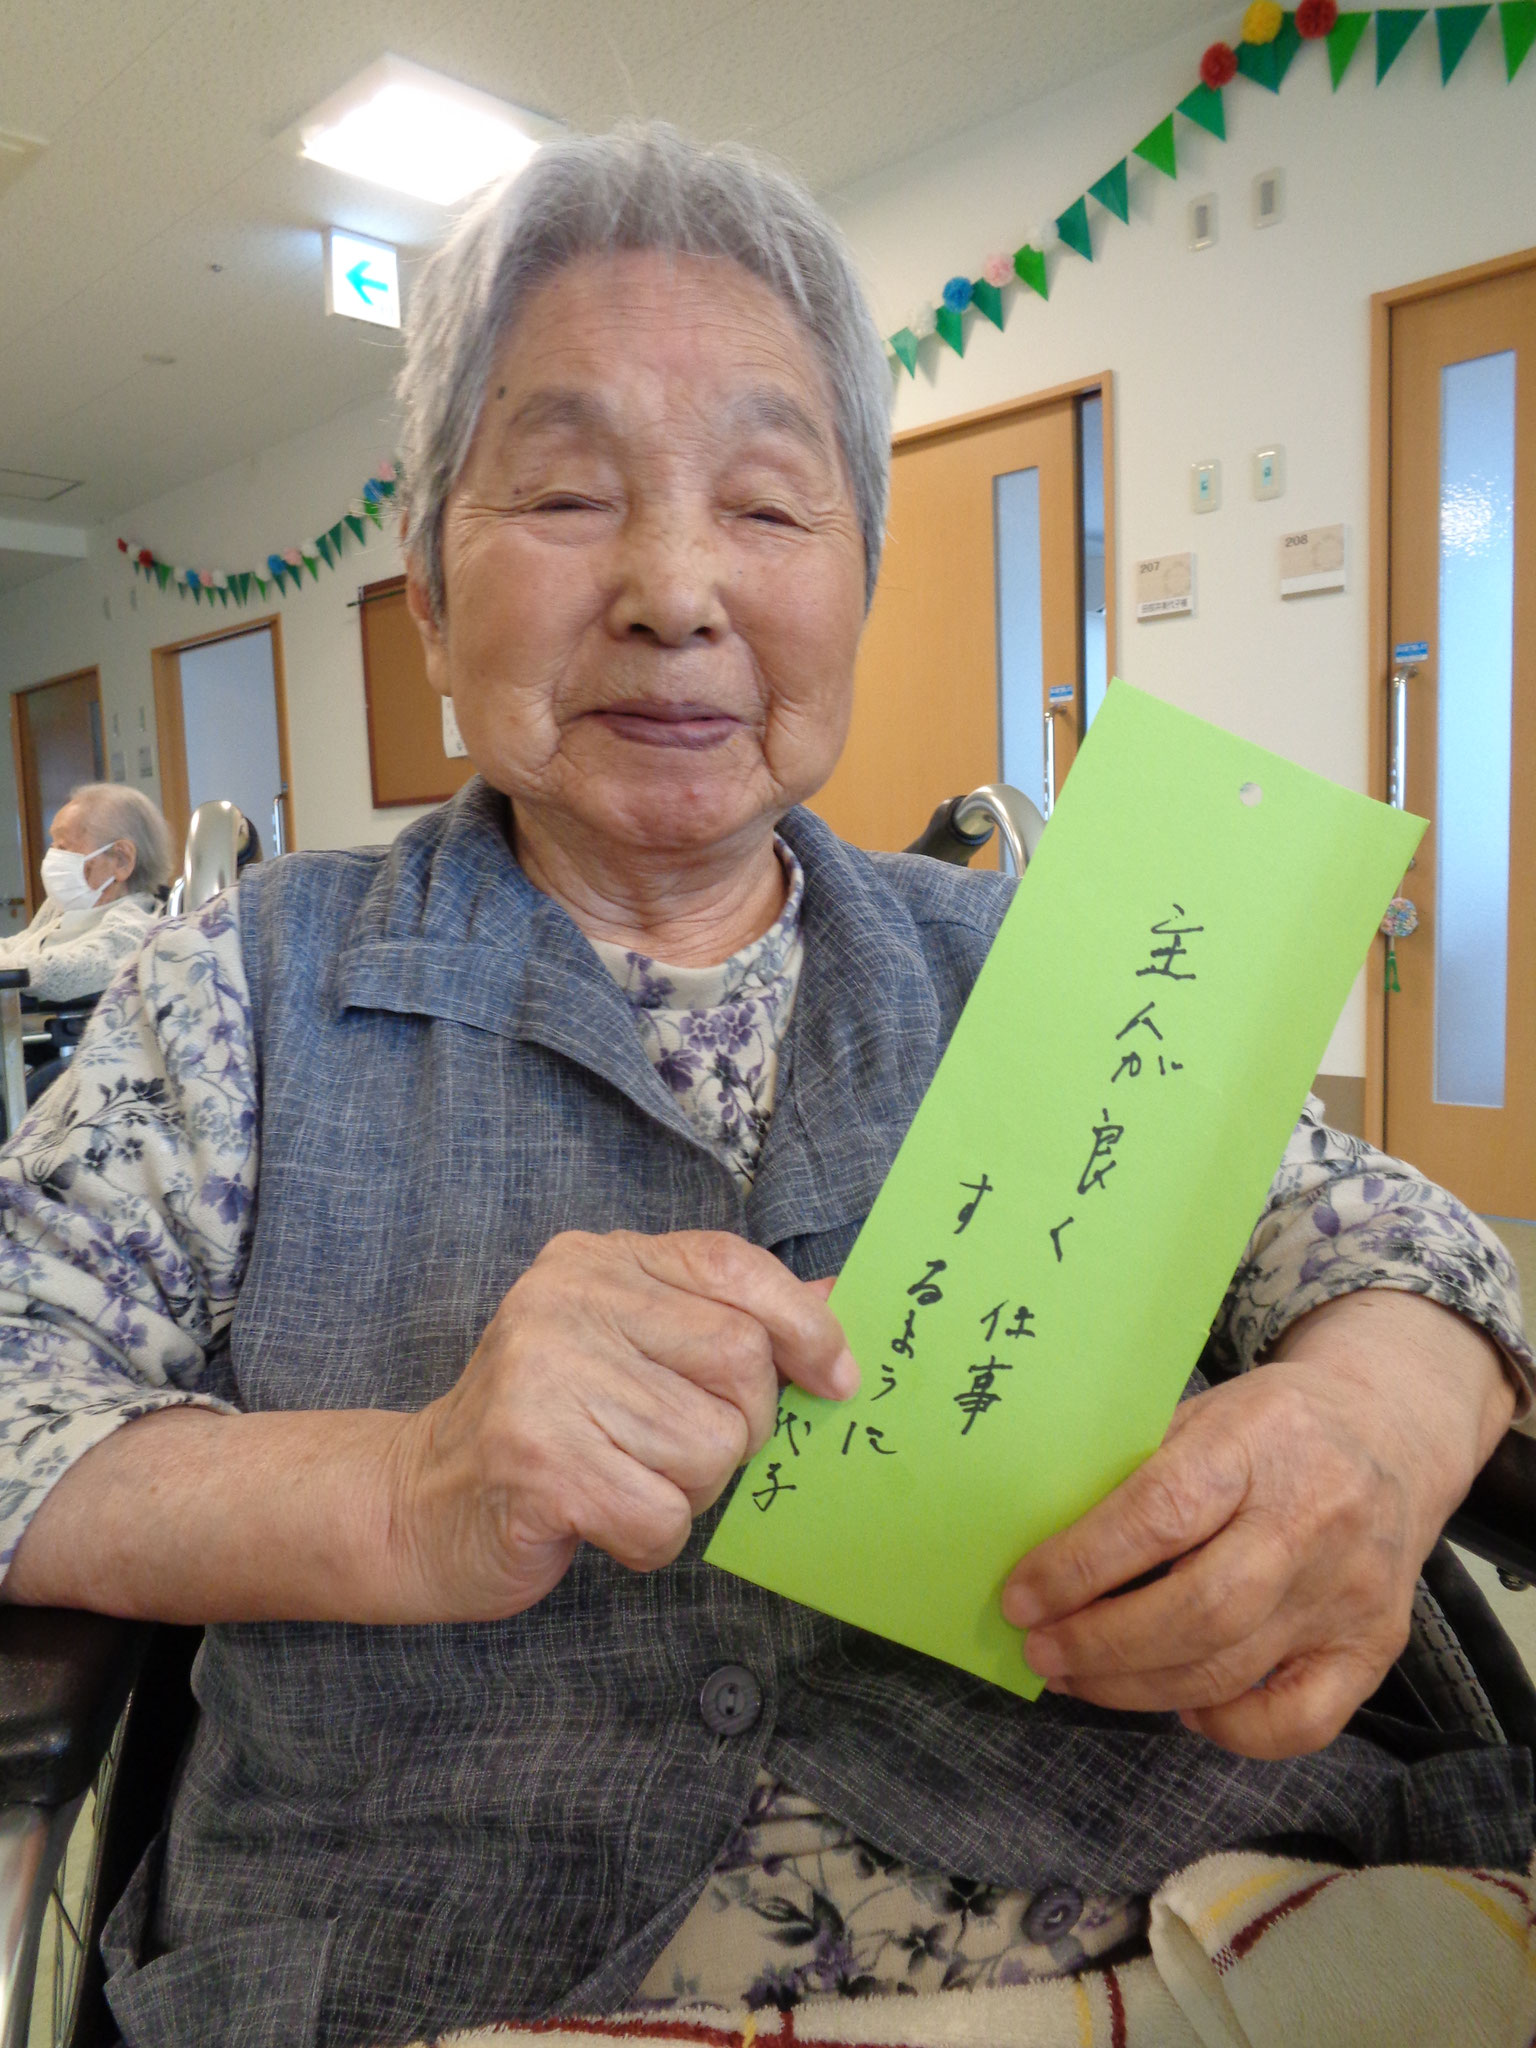 主人が良く仕事
するように
代子
207
208